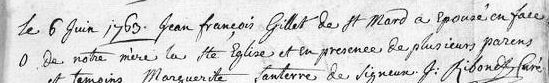 Le 6 Juin 1763. Jean françois Gillet de St Mard a Epousé en face
de notre mère la Ste Eglise et en presence de plusieurs parens
et temoins Marguerite Santerre de Signeux. J. Ribonet Curé